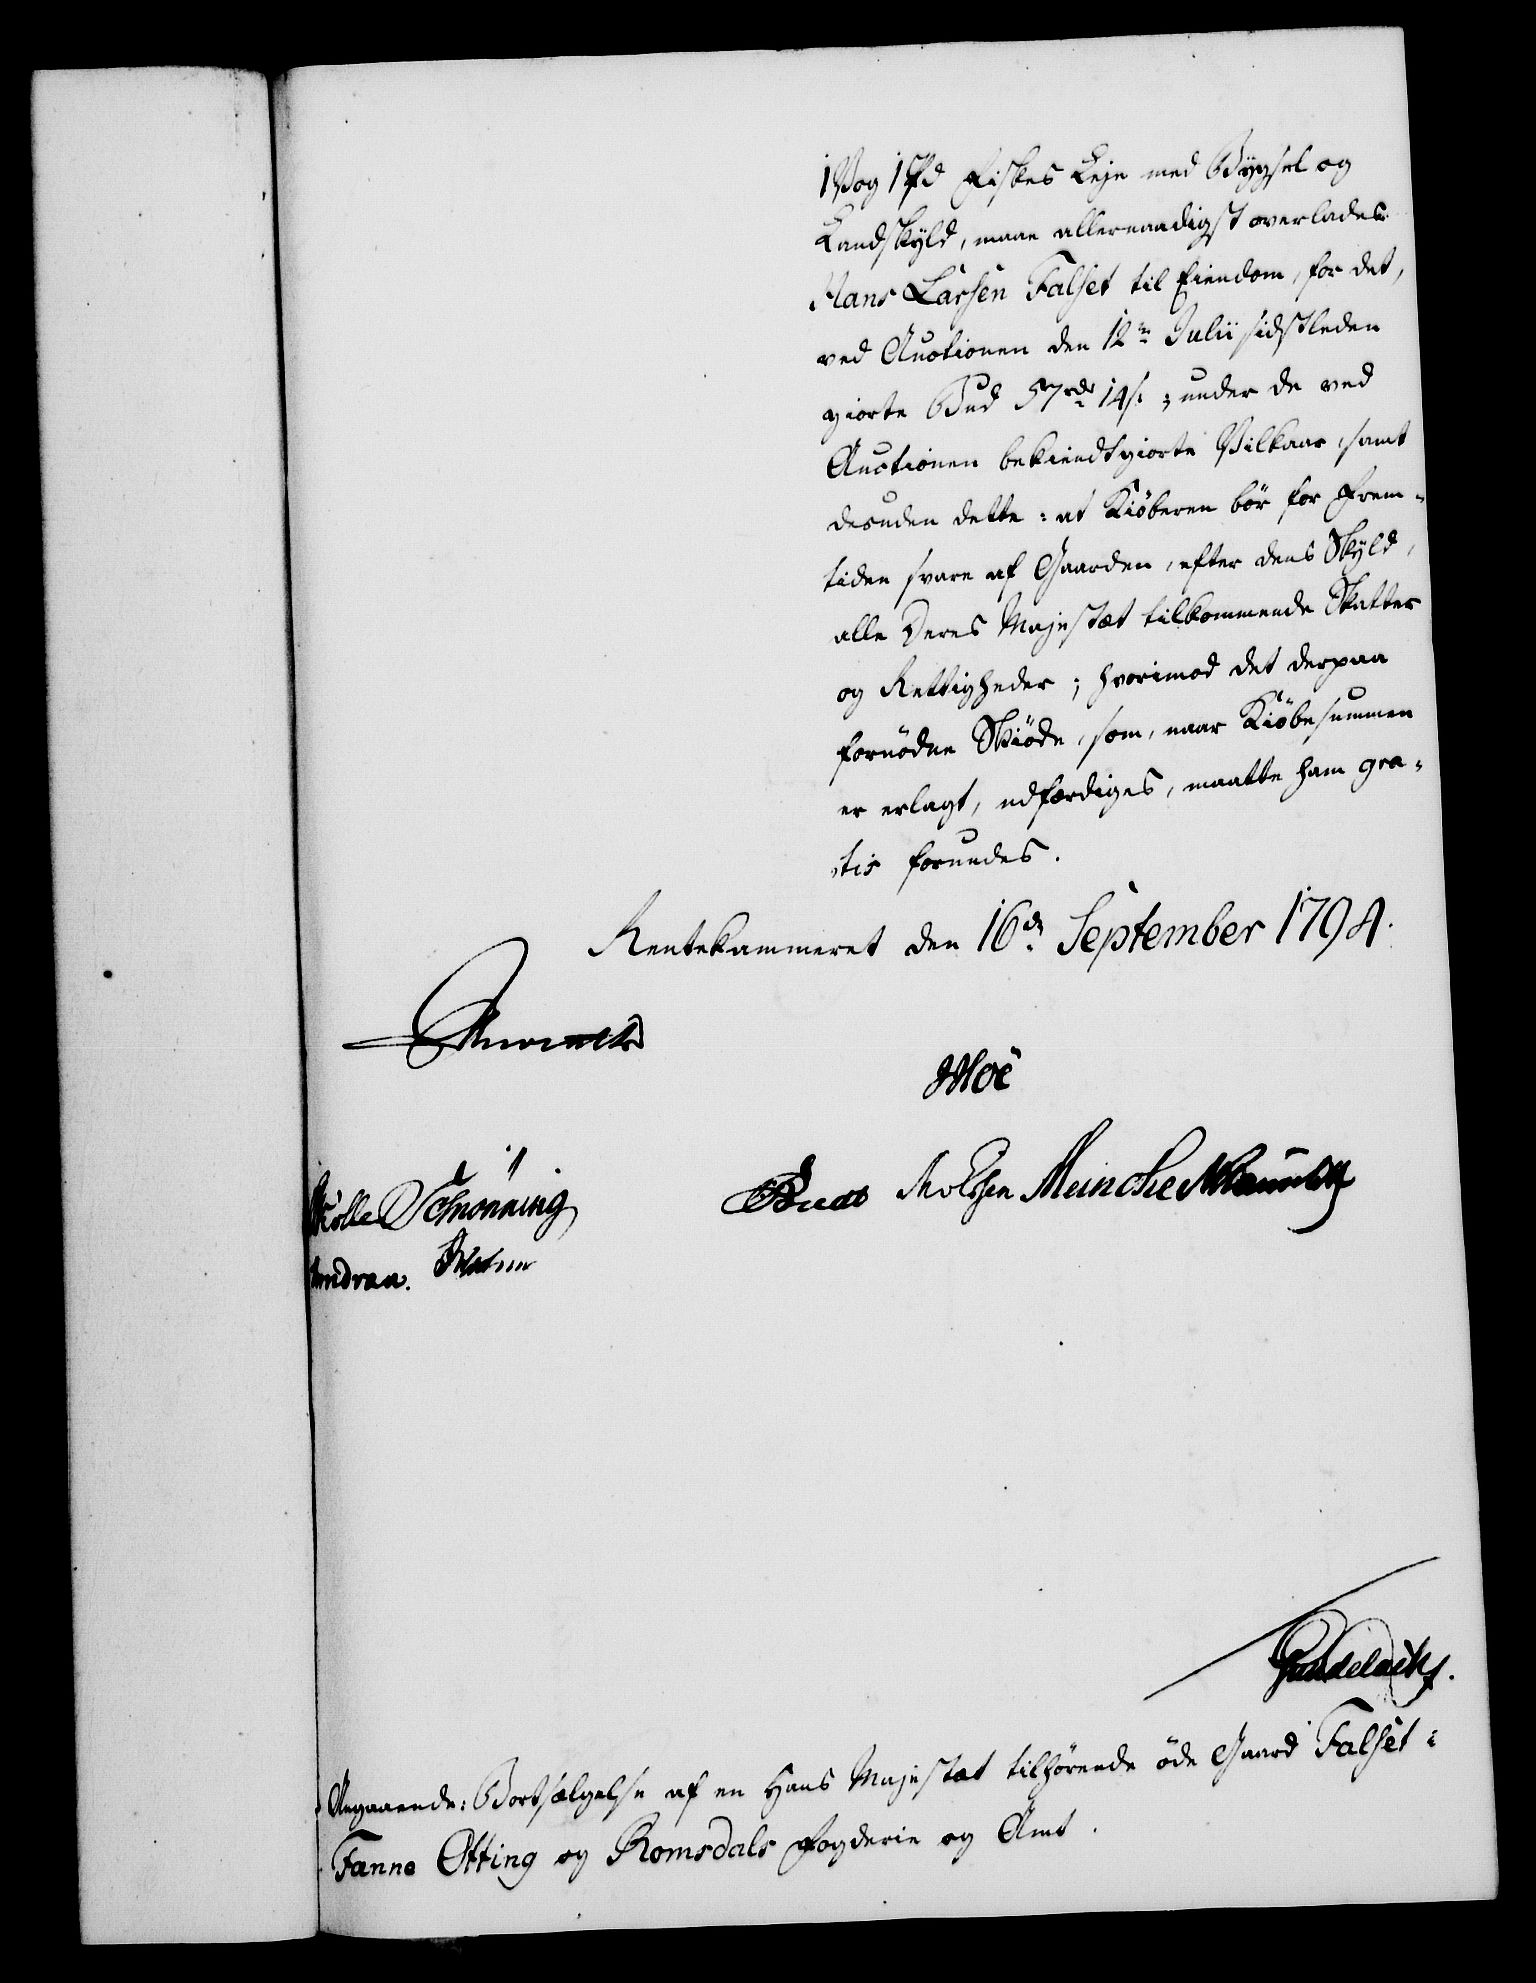 1 Vog 1 Pd Fiskes Leje med Bygsel og
Landskyld, maae allernaadigst overlades
Hans Larsen Falset til Eiendom, for det,
ved Auctionen den 12te Julii sidstleden
giorte Bud 57 rdr 14 s: ; under de ved
Auctionen bekiendtgiorte Vilkaar, samt
desuden dette: at Kiöberen bör for Frem-
tiden svare af Gaarden, efter dens Skyld,
alle Deres Majestæt tilkommende Skatter
og Rettigheder; hvorimod det derpaa
fornödne Skiöde, som, naar Kiöbesummen
er erlagt, udfærdiges, maatte ham gra-
tis forundes.
Rentekammeret den 16de September 1794.
Moe
Schrönning
Meincke
Angaaende: Bortsælgelse af en Hans Majestæt tilhörende öde Gaard Falset i
Fanne Otting og Romsdals Fogderie og Amt.